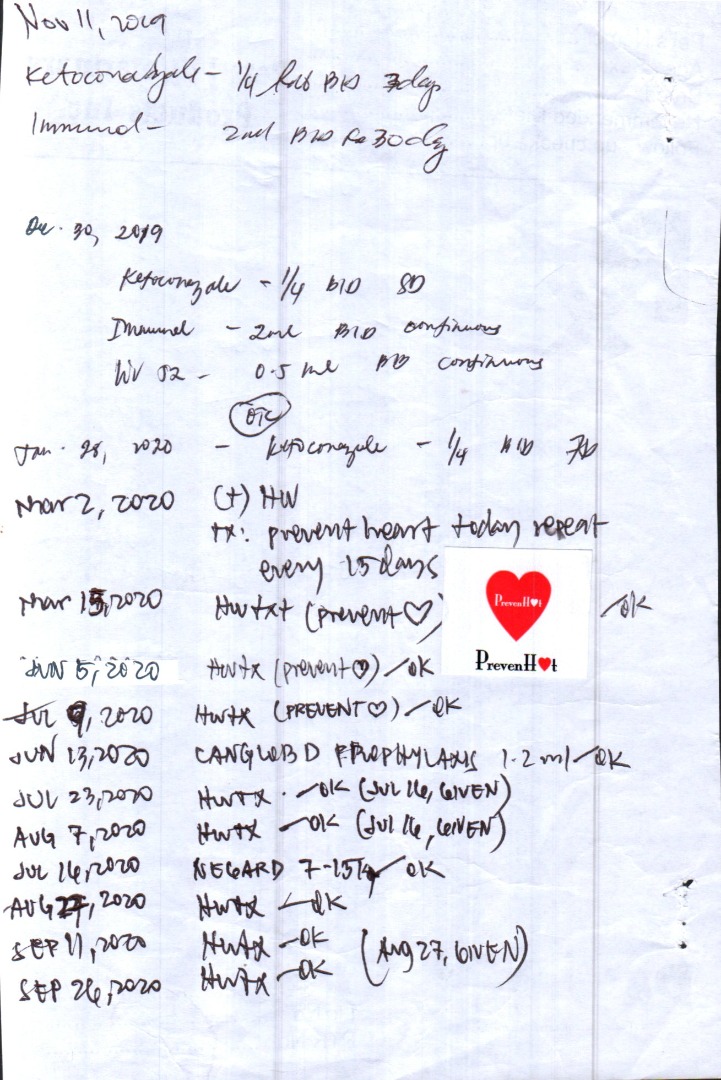 Nov 11, 2019
Ketoconazole - 1/4 tab BID 7 days
Immunol - 2ml BID for 30 days
Dec. 30, 2019
Ketoconazole - 1/4 BID
Immunol - 2ml BID continuous
LIV 52 - 0.5 ml BID continuous
OTC
Jan. 28, 2020 - Ketoconazole - 1/4 BID 7D
Mar 2, 2020 (+) HW
tx: prevent heart today repeat
every 15 days
Mar 15, 2020 Hwtxt (prevent♡) OK
PrevenH♥t
PrevenH♥t
JUN 5, 2020 Hwtx (prevent♡) OK
JUL 9, 2020 HWTX (PREVENT♡) OK
JUN 13, 2020 CANGLOB D PROPHYLAXIS 1.2 ml OK
JUL 23, 2020 HWTX. OK (JUL 16, GIVEN)
AUG 7, 2020 HWTX OK (JUL 16, GIVEN)
JUL 16, 2020 NEGARD 7-15kg OK
AUG 27, 2020 HWTX OK
SEP 11, 2020 HWTX OK (Aug 27, GIVEN)
SEP 26, 2020 HWTX OK